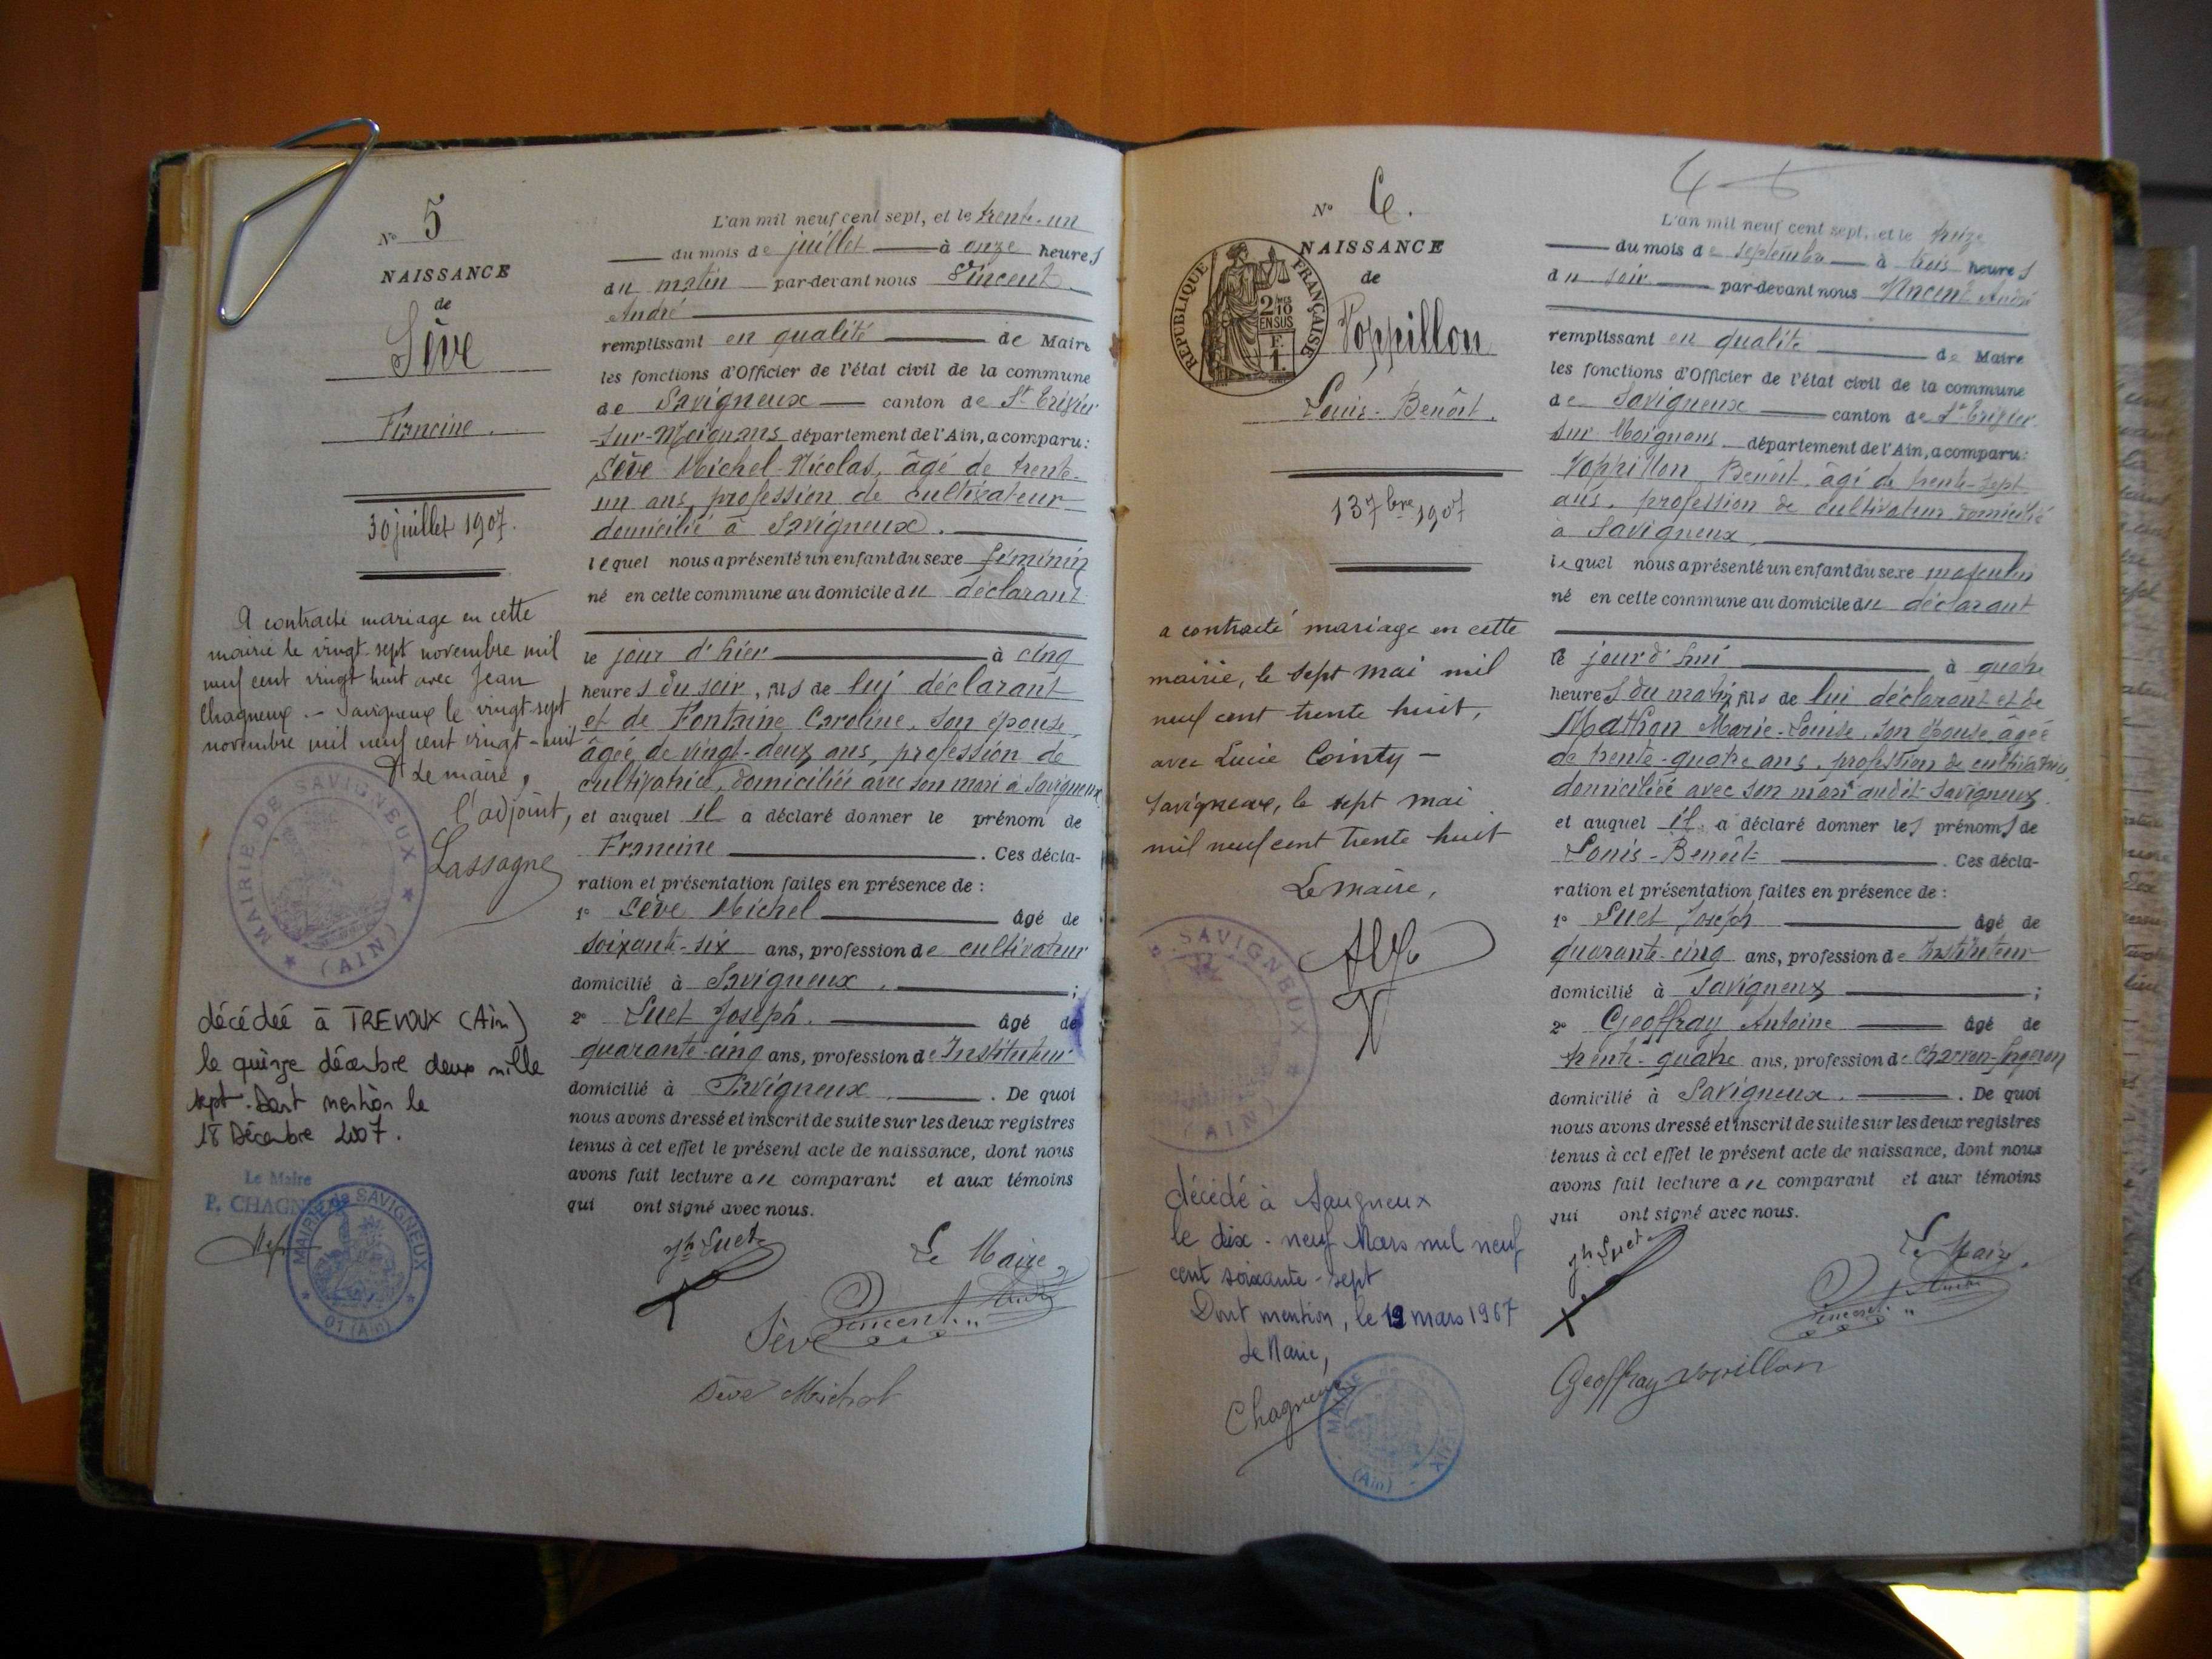 N° 5
NAISSANCE
de
Sève
Francine.
30 juillet 1907.
A contracté mariage en cette
mairie le vingt-sept novembre mil
neuf cent vingt huit avec Jean
Chagneux. – Savigneux le vingt-sept
novembre mil neuf cent vingt-huit
Pr Le maire,
l'adjoint,
Lassagne
MAIRIE DE SAVIGNEUX
(AIN)
décédée à TREVOUX (Ain)
le quinze décembre deux mille
sept. Dont mention le
18 Décembre 2007.
Le Maire
P. CHAGN
MAIRIE de SAVIGNEUX
01 (Ain)
L'an mil neuf cent sept, et le trente-un
du mois de juillet à onze heures
du matin par-devant nous Vincent
André
remplissant en qualité de Maire
les fonctions d'Officier de l'état civil de la commune
de Savigneux canton de St Trivier
-sur-Moignans département de l'Ain, a comparu:
Sève Michel-Nicolas, âgé de trente-
un ans, profession de cultivateur
domicilié à Savigneux.
lequel nous a présenté un enfant du sexe féminin
né en cette commune au domicile du déclarant
le jour d'hier à cinq
heures du soir, fils de lui déclarant
et de Fontaine Caroline, son épouse,
âgée de vingt-deux ans, profession de
cultivatrice, domiciliée avec son mari à Savigneux
et auquel il a déclaré donner le prénom de
Francine. Ces décla-
ration et présentation faites en présence de :
1° Sève Michel âgé de
soixante-six ans, profession de cultivateur
domicilié à Savigneux. ;
2° Suet Joseph. âgé de
quarante-cinq ans, profession de Instituteur
domicilié à Savigneux. De quoi
nous avons dressé et inscrit de suite sur les deux registres
tenus à cet effet le présent acte de naissance, dont nous
avons fait lecture au comparant et aux témoins
qui ont signé avec nous.
Jh Suet
Le Maire
Vincent André
Sève
Sève Michel
N° 6.
NAISSANCE
de
RÉPUBLIQUE FRANÇAISE
2/10
EN SUS
F.
1.
Voppillon
Louis-Benôit.
13 7bre 1907
a contracté mariage en cette
mairie, le sept mai mil
neuf cent trente huit,
avec Lucie Cointy –
Savigneux, le sept mai
mil neuf cent trente huit
Le maire,
SAVIGNEUX
(AIN)
décédé à Savigneux
le dix-neuf Mars mil neuf
cent soixante-sept
Dont mention, le 19 mars 1967
Le Maire,
Chagneux
(Ain)
L'an mil neuf cent sept, et le treize
du mois de septembre à trois heures
du soir par-devant nous Vincent André
remplissant en qualité de Maire
les fonctions d'Officier de l'état civil de la commune
de Savigneux canton de St Trivier
sur Moignans département de l'Ain, a comparu:
Voppillon Benoit, âgé de trente-sept
ans, profession de cultivateur domicilié
à Savigneux
lequel nous a présenté un enfant du sexe masculin
né en cette commune au domicile du déclarant
le jourd'hui à quatre
heures du matin, fils de lui déclarant et de
Mathon Marie-Louise, son épouse âgée
de trente-quatre ans, profession de cultivatrice
domiciliée avec son mari audit Savigneux
et auquel il a déclaré donner les prénoms de
Louis-Benôit. Ces décla-
ration et présentation faites en présence de :
1° Suet Joseph âgé de
quarante-cinq ans, profession de Instituteur
domicilié à Savigneux ;
2° Geoffray Antoine âgé de
trente-quatre ans, profession de Charron-forgeron
domicilié à Savigneux. De quoi
nous avons dressé et inscrit de suite sur les deux registres
tenus à cet effet le présent acte de naissance, dont nous
avons fait lecture au comparant et aux témoins
qui ont signé avec nous.
Jh Suet
Le Maire
Vincent André
Geoffray Vopillon